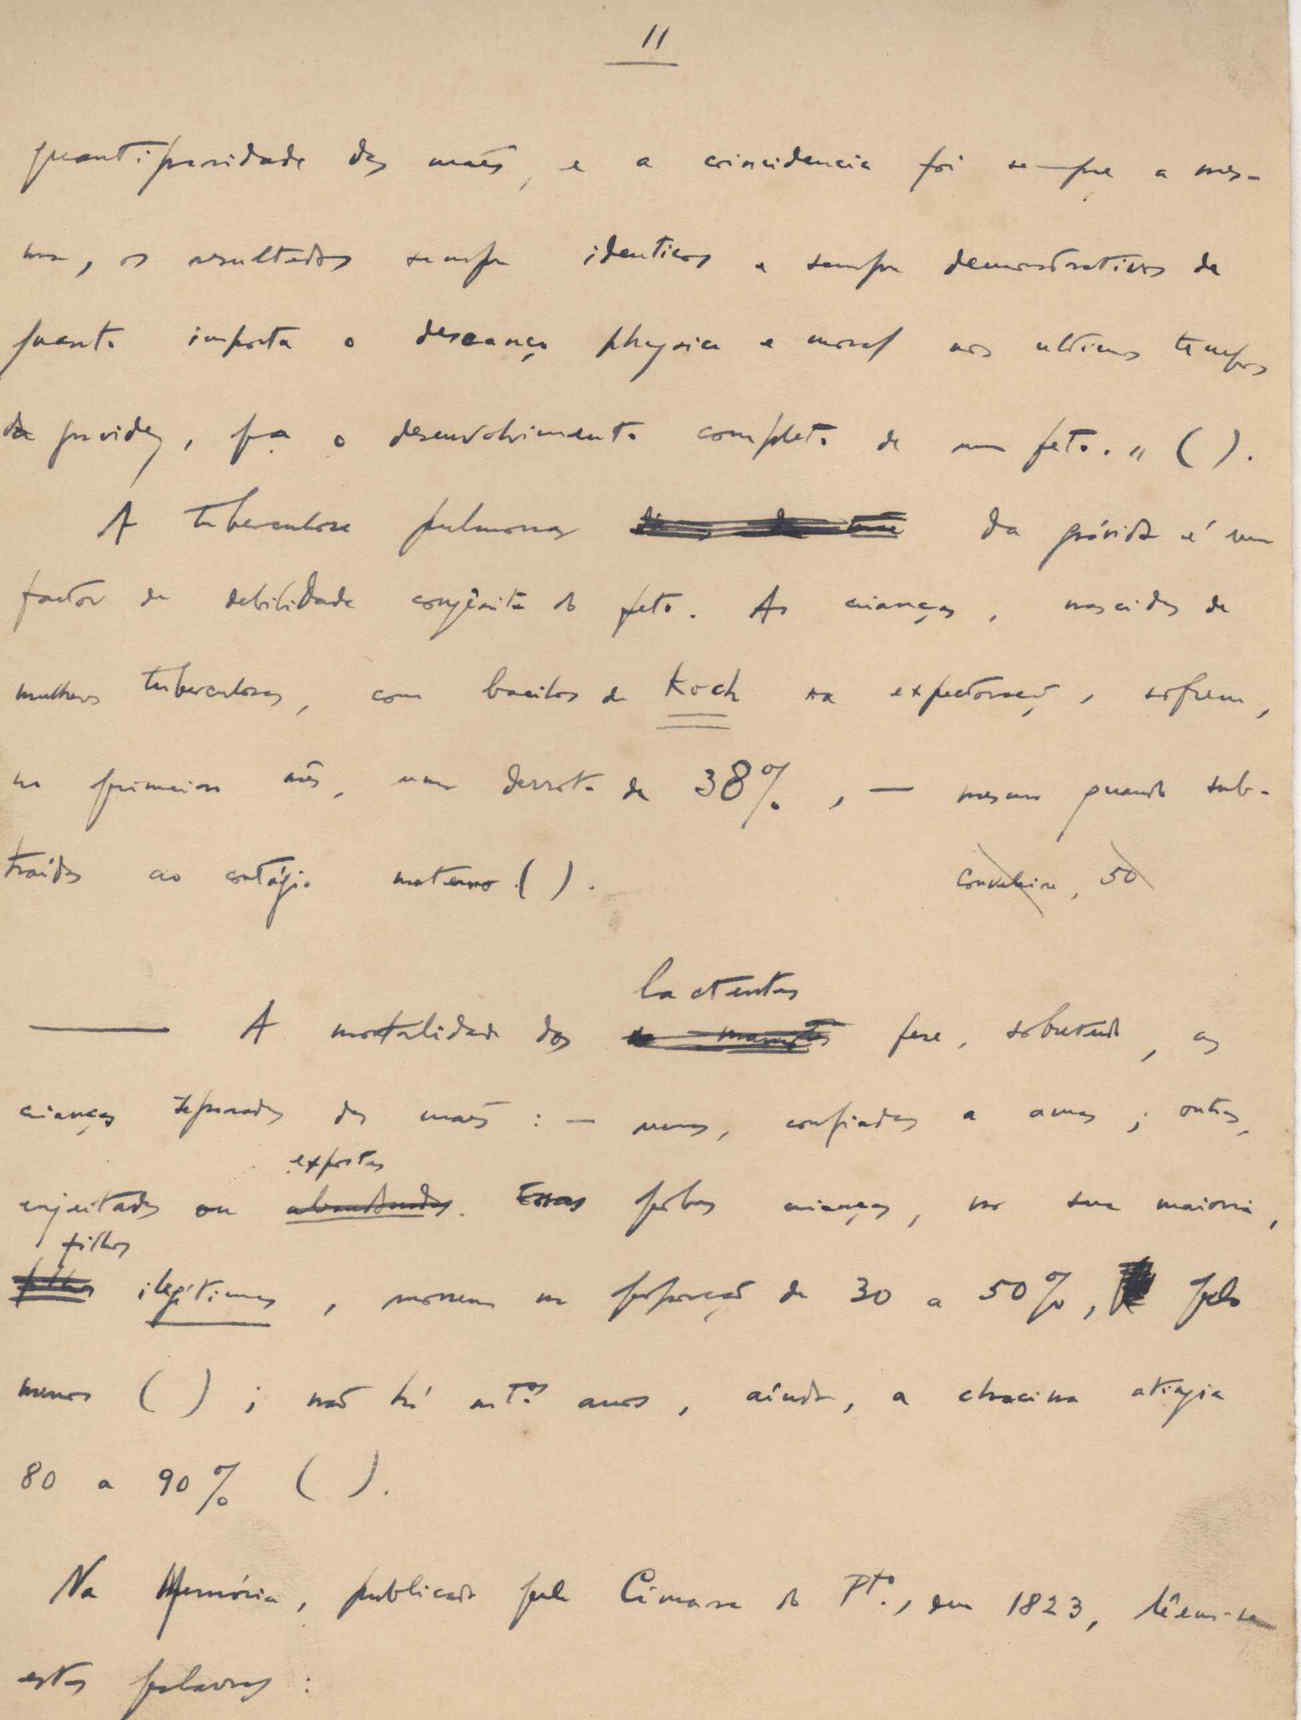 11
quantiparidade das mães, e a coincidencia foi sempre a mes-
ma, os resultados sempre identicos e sempre demonstrativos de
quanto importa o descanço physico e moral nos ultimos tempos
da gravidez, pa o desenvolvimento completo de um feto. " ( ).
A tuberculose pulmonar da grávida é um
factor de debilidade congênita do feto. As crianças, nascidas de
mulheres tuberculosas, com bacilos de Koch na expectoração, sofrem,
no primeiro mês, uma derrota de 38%, — mesmo quando sub-
traídas ao contágio materno ( ).
50
lactentes
— A mortalidade dos fere, sobretudo, as
crianças separadas das mães : — umas, confiadas a amas ; outras,
expostas
enjeitadas ou abandonadas. Essas pobres crianças, na sua maioria,
filhos
filhos ilegítimos, morrem na proporção de 30 a 50%, pelo
menos ( ) ; não há mtos. anos, aínda, a chacina atingia
80 a 90% ( ).
Na Memória, publicada pela Câmara do Pto., em 1823, lêem-se
estas palavras :